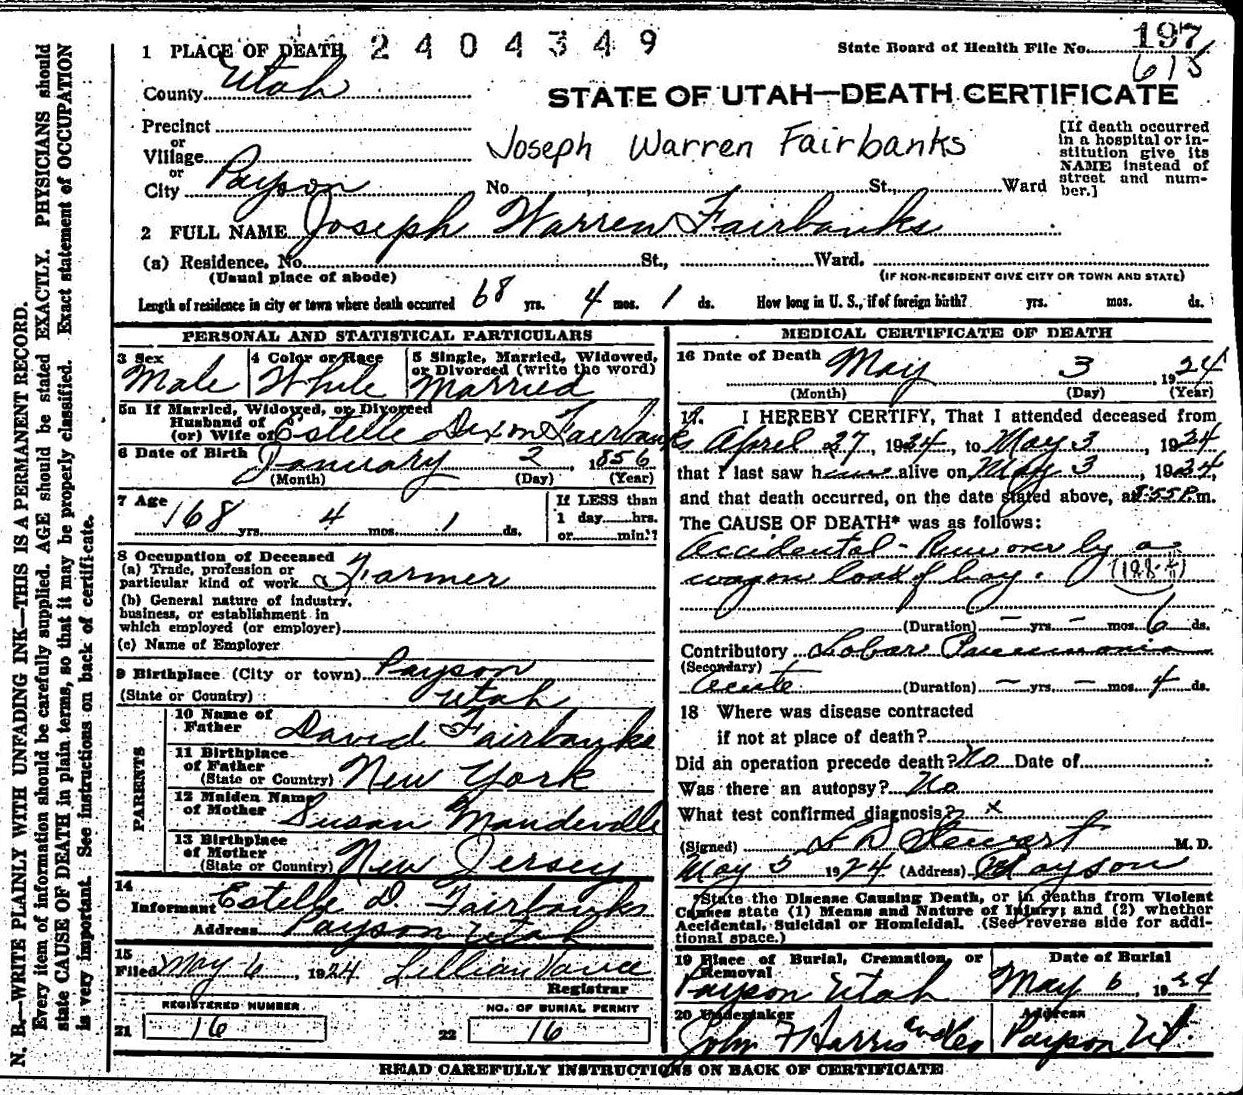 1 PLACE OF DEATH 2404349 State Board of Health File No. 197
615
County Utah
STATE OF UTAH—DEATH CERTIFICATE
Precinct
or
Village
or
City Payson No. , St., Ward
Joseph Warren Fairbanks
[If death occurred
in a hospital or in-
stitution give its
NAME instead of
street and num-
ber.]
2 FULL NAME Joseph Warren Fairbanks
(a) Residence, No. St., Ward.
(Usual place of abode) (IF NON-RESIDENT GIVE CITY OR TOWN AND STATE)
Length of residence in city or town where death occurred 68 yrs. 4 mos. 1 ds. How long in U. S., if of foreign birth? yrs. mos. ds.
PERSONAL AND STATISTICAL PARTICULARS
3 Sex
Male
4 Color or Race
White
5 Single, Married, Widowed,
or Divorced (write the word)
Married
5a If Married, Widowed, or Divorced
Husband of
(or) Wife of Estelle Dixon Fairbanks
6 Date of Birth January 2, 1856
(Month) (Day) (Year)
7 Age
68 yrs. 4 mos. 1 ds.
If LESS than
1 day hrs.
or min.?
8 Occupation of Deceased
(a) Trade, profession or
particular kind of work Farmer
(b) General nature of industry,
business, or establishment in
which employed (or employer)
(c) Name of Employer
9 Birthplace (City or town) Payson
(State or Country) Utah
PARENTS
10 Name of
Father David Fairbanks
11 Birthplace
of Father
(State or Country) New York
12 Maiden Name
of Mother Susan Mandeville
13 Birthplace
of Mother
(State or Country) New Jersey
14
Informant Estelle D. Fairbanks
Address Payson Utah
15
Filed May 6, 1924 Lillian Vance
Registrar
REGISTERED NUMBER
21 16
NO. OF BURIAL PERMIT
22 16
MEDICAL CERTIFICATE OF DEATH
16 Date of Death May 3, 1924
(Month) (Day) (Year)
17. I HEREBY CERTIFY, That I attended deceased from
April 27, 1924, to May 3, 1924
that I last saw him alive on May 3, 1924,
and that death occurred, on the date stated above, at 8:55 P.m.
The CAUSE OF DEATH* was as follows:
Accidental - Run over by a
wagon load of hay.
(Duration) - yrs. - mos. 6 ds.
Contributory Lobar Pneumonia
(Secondary)
Acute (Duration) - yrs. - mos. 4 ds.
18 Where was disease contracted
if not at place of death?
Did an operation precede death? No Date of
Was there an autopsy? No
What test confirmed diagnosis? x
(Signed) L D Stewart M. D.
May 5 1924 (Address) Payson
*State the Disease Causing Death, or in deaths from Violent
Causes state (1) Means and Nature of Injury; and (2) whether
Accidental, Suicidal or Homicidal. (See reverse side for addi-
tional space.)
19 Place of Burial, Cremation, or
Removal
Payson Utah
Date of Burial
May 6, 1924
20 Undertaker
John F Harris and Co
Address
Payson Ut.
READ CAREFULLY INSTRUCTIONS ON BACK OF CERTIFICATE
N. B.—WRITE PLAINLY WITH UNFADING INK—THIS IS A PERMANENT RECORD.
Every item of information should be carefully supplied. AGE should be stated EXACTLY. PHYSICIANS should
state CAUSE OF DEATH in plain terms, so that it may be properly classified. Exact statement of OCCUPATION
is very important. See instructions on back of certificate.